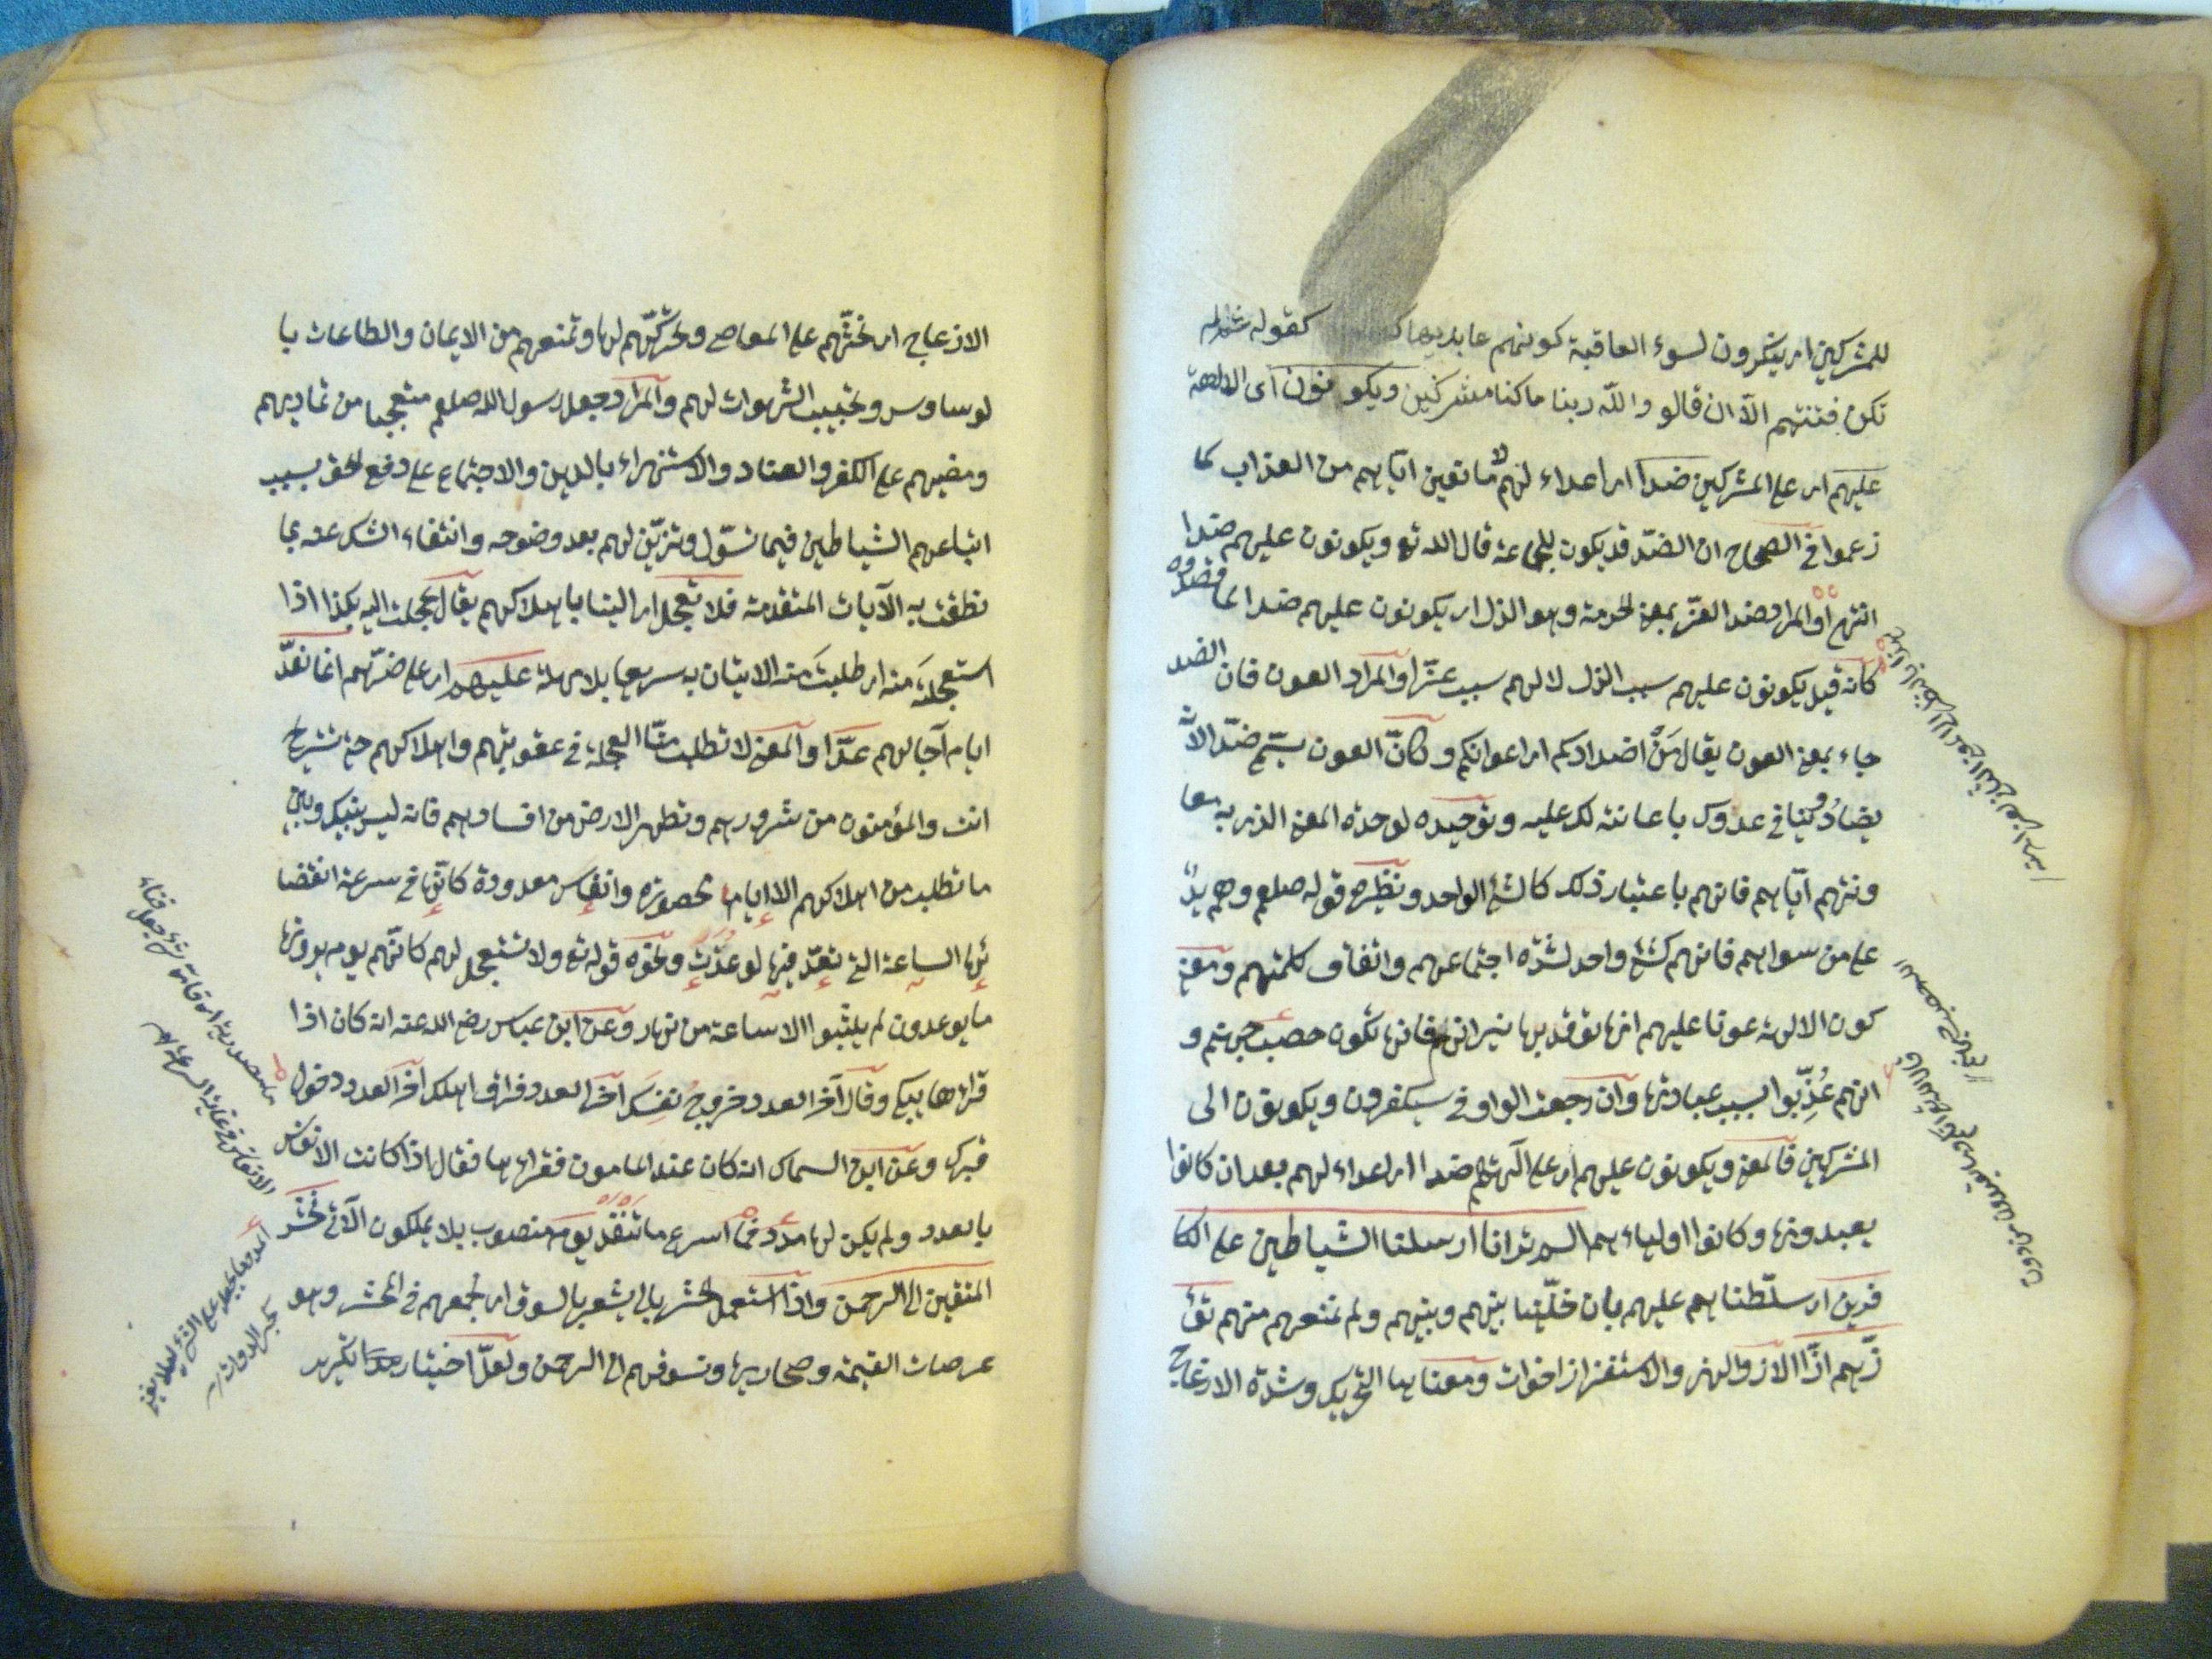 للمشركين اى ينكرون لسوء العاقبة كونهم عابديها كقوله ثم لم
تكن فتنتهم الا ان قالو والله ربنا ما كنا مشركين ويكونون اى الالهة
عليهم اى على المشركين ضدا اى اعداء لهم لا مانعين اياهم من العذاب كما
زعموا فى الصحاح ان الضد قد يكون للجماعة قال الله تع ويكونون عليهم ضدا
انتهى او المراد ضد العز بمعنى لحرمة وهو الذل اى يكونون عليهم ضدا لما قصدوه
كانه قيل يكونون عليهم سبب الذل لا لهم سبب عز او المراد العون فان الضد
جاء بمعنى العون يقال مَنْ اضدادكم اى اعوانكم وكانّ العون يسمى ضدّا لانه
يضادّ وينافى عدوك باعانته لك عليه وتوحيده لوحدة المعنى الذى به معا
ونتهم اياهم فانهم باعتبار ذلك كالشئ الواحد ونظيره قوله صلعم وهم يدٌ
على من سواهم فانهم كشئ واحد لشدة اجتماعهم واتفاق كلمتهم ومعنى
كون الالهة عونا عليهم انها توقد بها نيرانهم فانها تكون حصب جهنم و
انهم عُذِّبوا بسبب عبادتها وان رجعت الواو فى سيكفرون ويكونون الى
المشركين فالمعنى ويكونون عليهم اى على آلهتهم ضدا اى اعداء لهم بعد ان كانوا
يعبدونها وكانوا اولياءهم الم تر انا ارسلنا الشياطين على الكا
فرين اى سلّطناهم عليهم بان خلّينا بينهم وبينهم ولم نمنعهم منهم تؤ
زّهم ازّا الاز والهز والاستفزاز اخوات ومعناها التحريك وشدة الازعاج
الازعاج اى تحثّهم على المعاصى وتحركّهم لها وتمنعهم من الايمان والطاعات با
لوساوس وتحبيب الشهوات لهم والمراد جعل رسول الله صلعم متعجبا من تماديهم
ومضيهم على الكفر والعناد والاستهزاء بالدين والاجتماع على دفع لحق بسبب
اتباعهم الشياطين فيما تسوّل وتزيّن لهم بعد وضوحه وانتفاء الشك عنه بما
نطقت به الآيات المتقدمة فلا تعجل اى الينا باهلاكهم يقال عجلت اليه بكذا اذا
استعجلتَه منه اى طلبتَ منه الاتيان به سريعا بلا مهلة عليهم اى على ضرّهم انما نعدّ
ايام آجالهم عدّا والمعنى لا تطلب منّا العجلة فى عقوبتهم واهلاكهم حتى تستريح
انت والمؤمنون من شرورهم وتطهر الارض من افسادهم فانه ليس بينك وبين
ما تطلب من اهلاكهم الا ايام محصورة وانفاس معدودة كانها فى سرعة انقضا
ئها الساعة التى تعدّ فيها لو عدّت ونحوه قوله تع ولا تستعجل لهم كانهم يوم يرونها
ما يوعدون لم يلبثوا الا ساعة من نهار وعن ابن عباس رضى الله عنه انه كان اذا
قراها بيكى وقال آخر العدد خروج نفسك آخر العدد فراق اهلك آخر العدد دخول
قبرك وعن ابن السماك انه كان عند المامون فقراها فقال اذا كانت الانفاس
بالعدد ولم يكن لها مدد فما اسرع ما تنفد يوم منصوب بلا يملكون الآتى نحشر
المتقين الى الرحمن واذا استعمل لحشر بالى يشعر بالسوق اى نجمعهم فى المحشر وهو
عرصات القيمة وصحاريها ونسوقهم الى الرحمن ولعلّ اختيار هذا تكرير